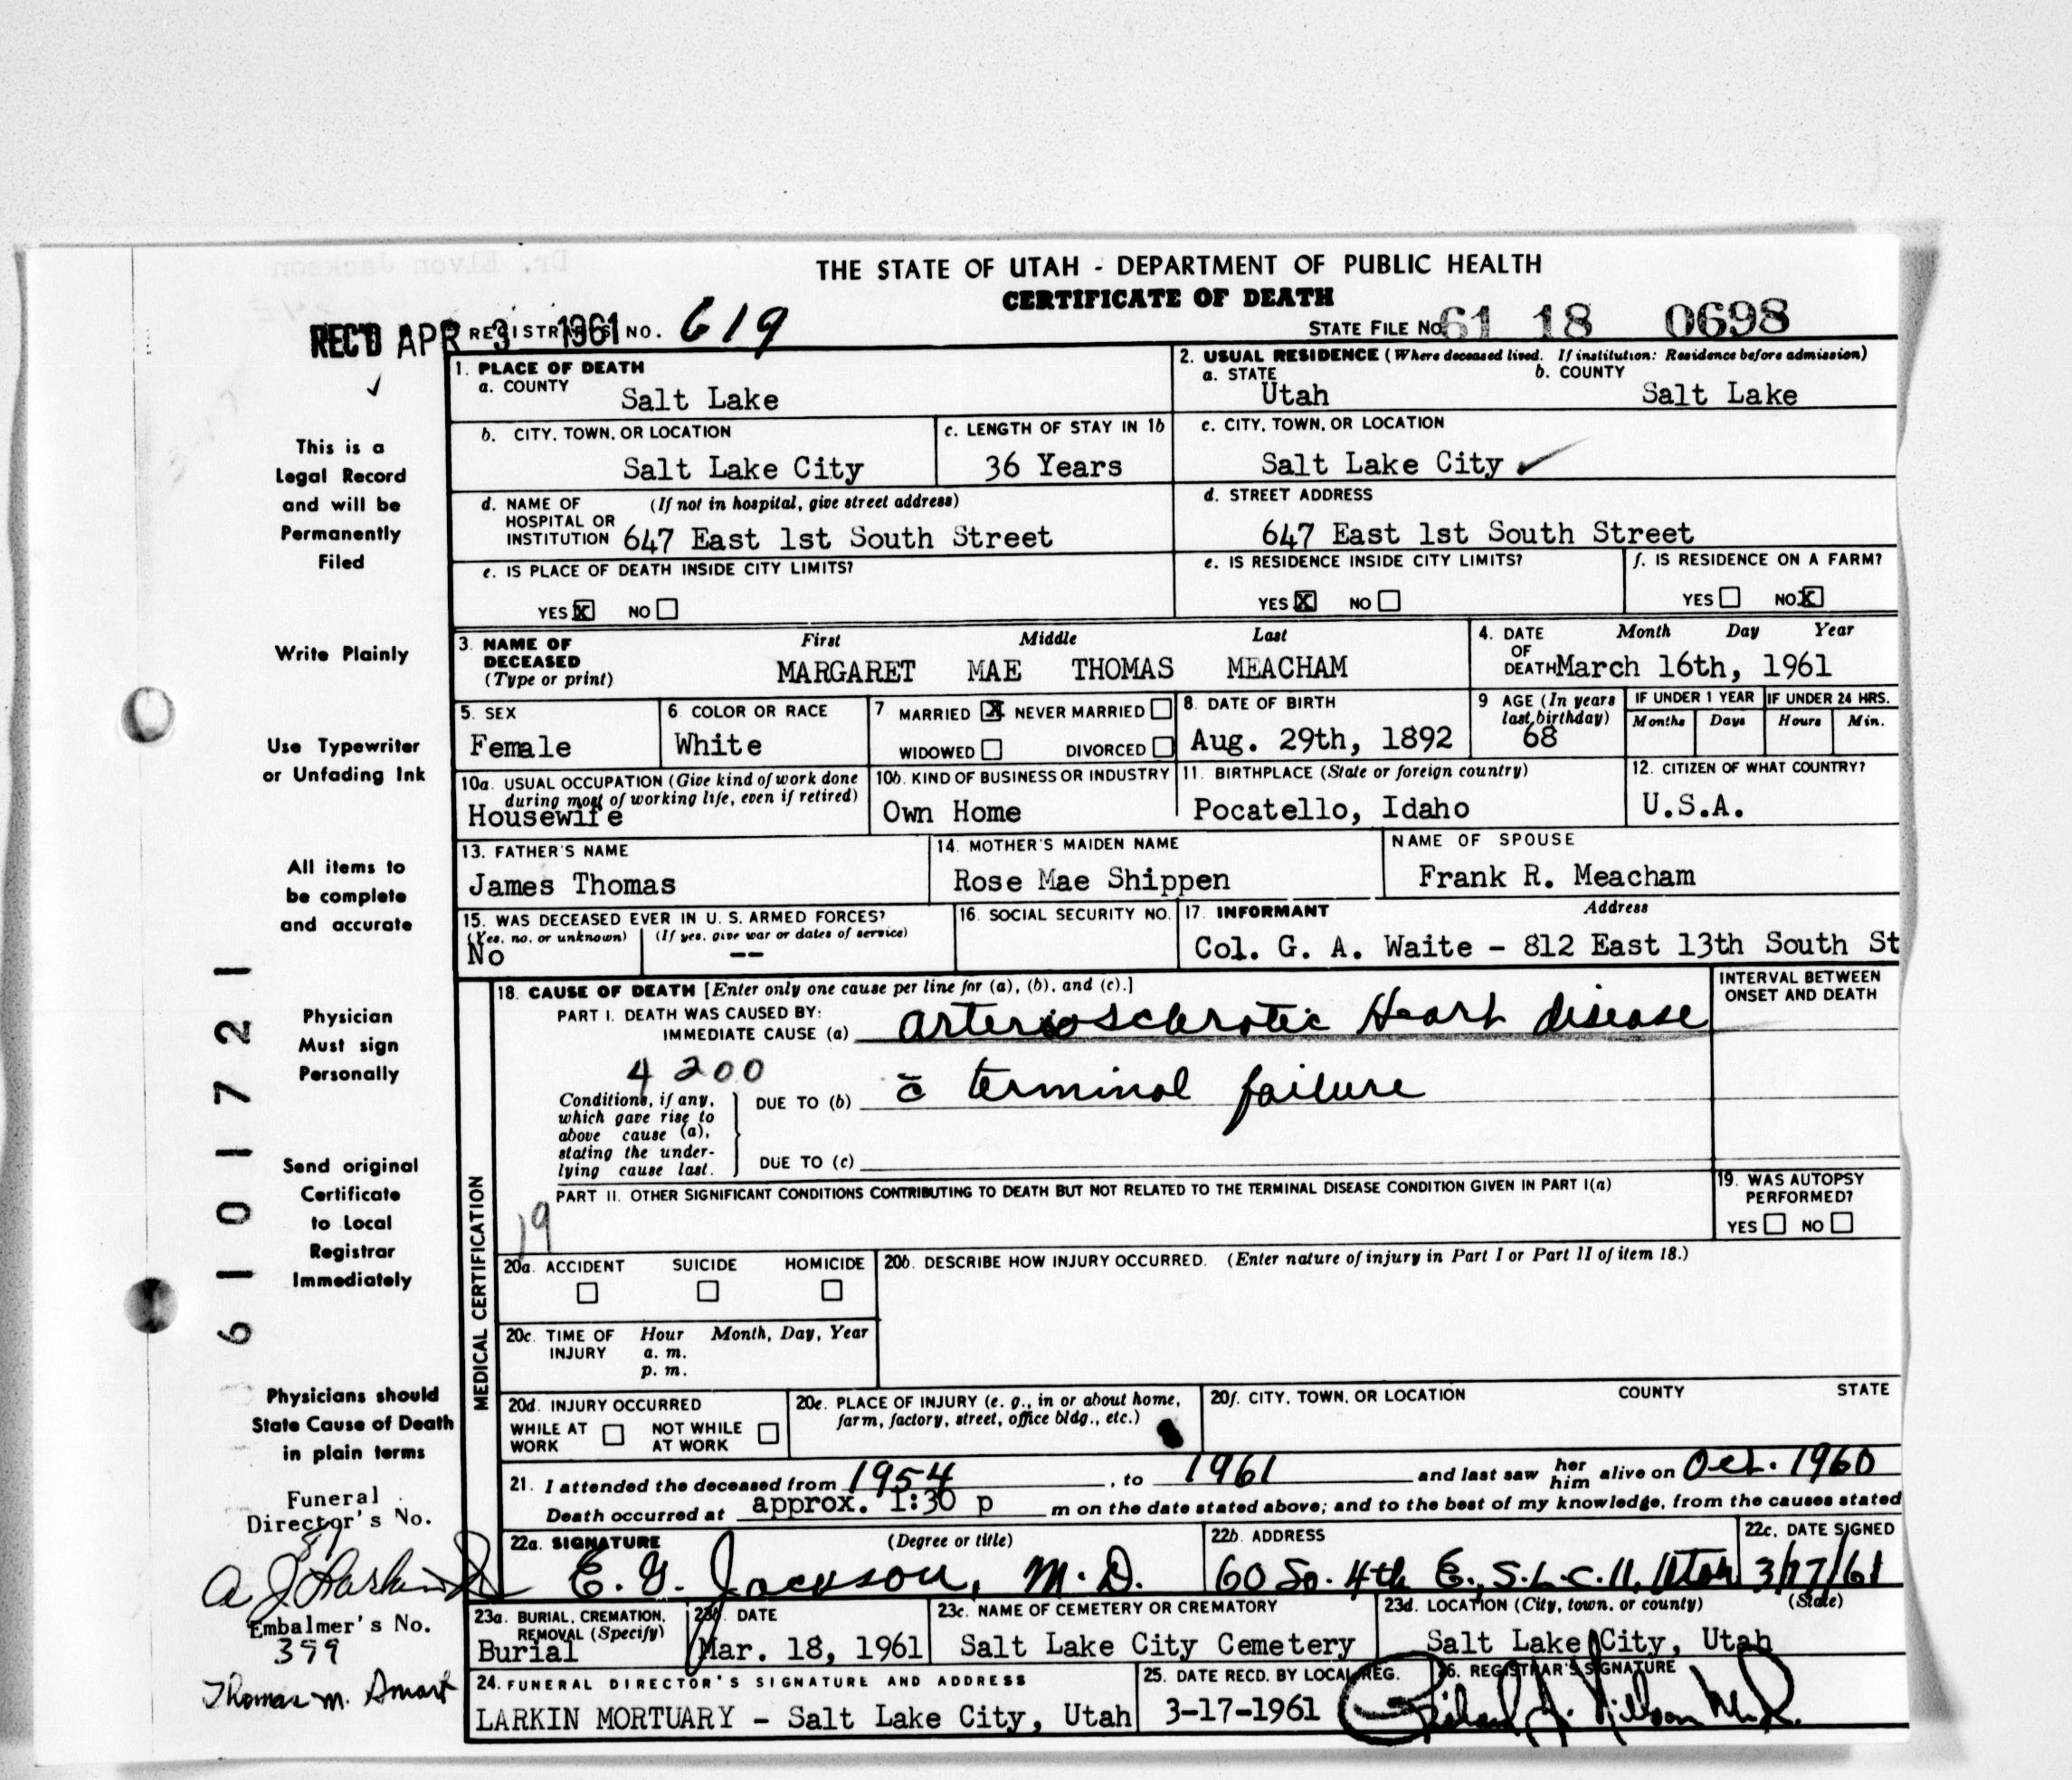 THE STATE OF UTAH - DEPARTMENT OF PUBLIC HEALTH
CERTIFICATE OF DEATH
REC'D APR 3 1961 REGISTRAR'S NO. 619
STATE FILE NO. 61 18 0698
1. PLACE OF DEATH
a. COUNTY Salt Lake
2. USUAL RESIDENCE (Where deceased lived. If institution: Residence before admission)
a. STATE Utah b. COUNTY Salt Lake
b. CITY, TOWN, OR LOCATION Salt Lake City
c. LENGTH OF STAY IN 1b 36 Years
c. CITY, TOWN, OR LOCATION Salt Lake City
d. NAME OF HOSPITAL OR INSTITUTION (If not in hospital, give street address) 647 East 1st South Street
d. STREET ADDRESS 647 East 1st South Street
e. IS PLACE OF DEATH INSIDE CITY LIMITS?
YES X NO
e. IS RESIDENCE INSIDE CITY LIMITS?
YES X NO
f. IS RESIDENCE ON A FARM?
YES NO X
3. NAME OF DECEASED (Type or print) First Middle Last
MARGARET MAE THOMAS MEACHAM
4. DATE OF DEATH Month Day Year
March 16th, 1961
5. SEX Female
6. COLOR OR RACE White
7 MARRIED X NEVER MARRIED
WIDOWED DIVORCED
8. DATE OF BIRTH Aug. 29th, 1892
9 AGE (In years last birthday) 68
IF UNDER 1 YEAR Months Days
IF UNDER 24 HRS. Hours Min.
10a. USUAL OCCUPATION (Give kind of work done during most of working life, even if retired) Housewife
10b. KIND OF BUSINESS OR INDUSTRY Own Home
11. BIRTHPLACE (State or foreign country) Pocatello, Idaho
12. CITIZEN OF WHAT COUNTRY? U.S.A.
13. FATHER'S NAME James Thomas
14. MOTHER'S MAIDEN NAME Rose Mae Shippen
NAME OF SPOUSE Frank R. Meacham
15. WAS DECEASED EVER IN U. S. ARMED FORCES?
(Yes, no, or unknown) No (If yes, give war or dates of service) --
16. SOCIAL SECURITY NO.
17. INFORMANT Address
Col. G. A. Waite - 812 East 13th South St
18. CAUSE OF DEATH [Enter only one cause per line for (a), (b), and (c).]
INTERVAL BETWEEN ONSET AND DEATH
PART I. DEATH WAS CAUSED BY:
IMMEDIATE CAUSE (a) arteriosclerotic Heart disease
4200
Conditions, if any, which gave rise to above cause (a), stating the underlying cause last.
DUE TO (b) c̄ terminal failure
DUE TO (c)
PART II. OTHER SIGNIFICANT CONDITIONS CONTRIBUTING TO DEATH BUT NOT RELATED TO THE TERMINAL DISEASE CONDITION GIVEN IN PART I(a)
19
19. WAS AUTOPSY PERFORMED?
YES NO
MEDICAL CERTIFICATION
20a. ACCIDENT SUICIDE HOMICIDE
20b. DESCRIBE HOW INJURY OCCURRED. (Enter nature of injury in Part I or Part II of item 18.)
20c. TIME OF INJURY Hour Month, Day, Year
a. m.
p. m.
20d. INJURY OCCURRED
WHILE AT WORK NOT WHILE AT WORK
20e. PLACE OF INJURY (e. g., in or about home, farm, factory, street, office bldg., etc.)
20f. CITY, TOWN, OR LOCATION COUNTY STATE
21. I attended the deceased from 1954, to 1961 and last saw her him alive on Oct. 1960
Death occurred at approx. 1:30 p m on the date stated above; and to the best of my knowledge, from the causes stated
22a. SIGNATURE (Degree or title) E. G. Jackson, M.D.
22b. ADDRESS 60 So. 4th E., S.L.C. 11, Utah
22c. DATE SIGNED 3/17/61
23a. BURIAL, CREMATION, REMOVAL (Specify) Burial
23b. DATE Mar. 18, 1961
23c. NAME OF CEMETERY OR CREMATORY Salt Lake City Cemetery
23d. LOCATION (City, town, or county) (State)
Salt Lake City, Utah
24. FUNERAL DIRECTOR'S SIGNATURE AND ADDRESS
LARKIN MORTUARY - Salt Lake City, Utah
25. DATE RECD. BY LOCAL REG. 3-17-1961
26. REGISTRAR'S SIGNATURE
This is a
Legal Record
and will be
Permanently
Filed
Write Plainly
Use Typewriter
or Unfading Ink
All items to
be complete
and accurate
Physician
Must sign
Personally
Send original
Certificate
to Local
Registrar
Immediately
Physicians should
State Cause of Death
in plain terms
Funeral
Director's No.
A J Larkin
Embalmer's No.
399
Thomas M. Smart
6101721
Dr. Elvon Jackson